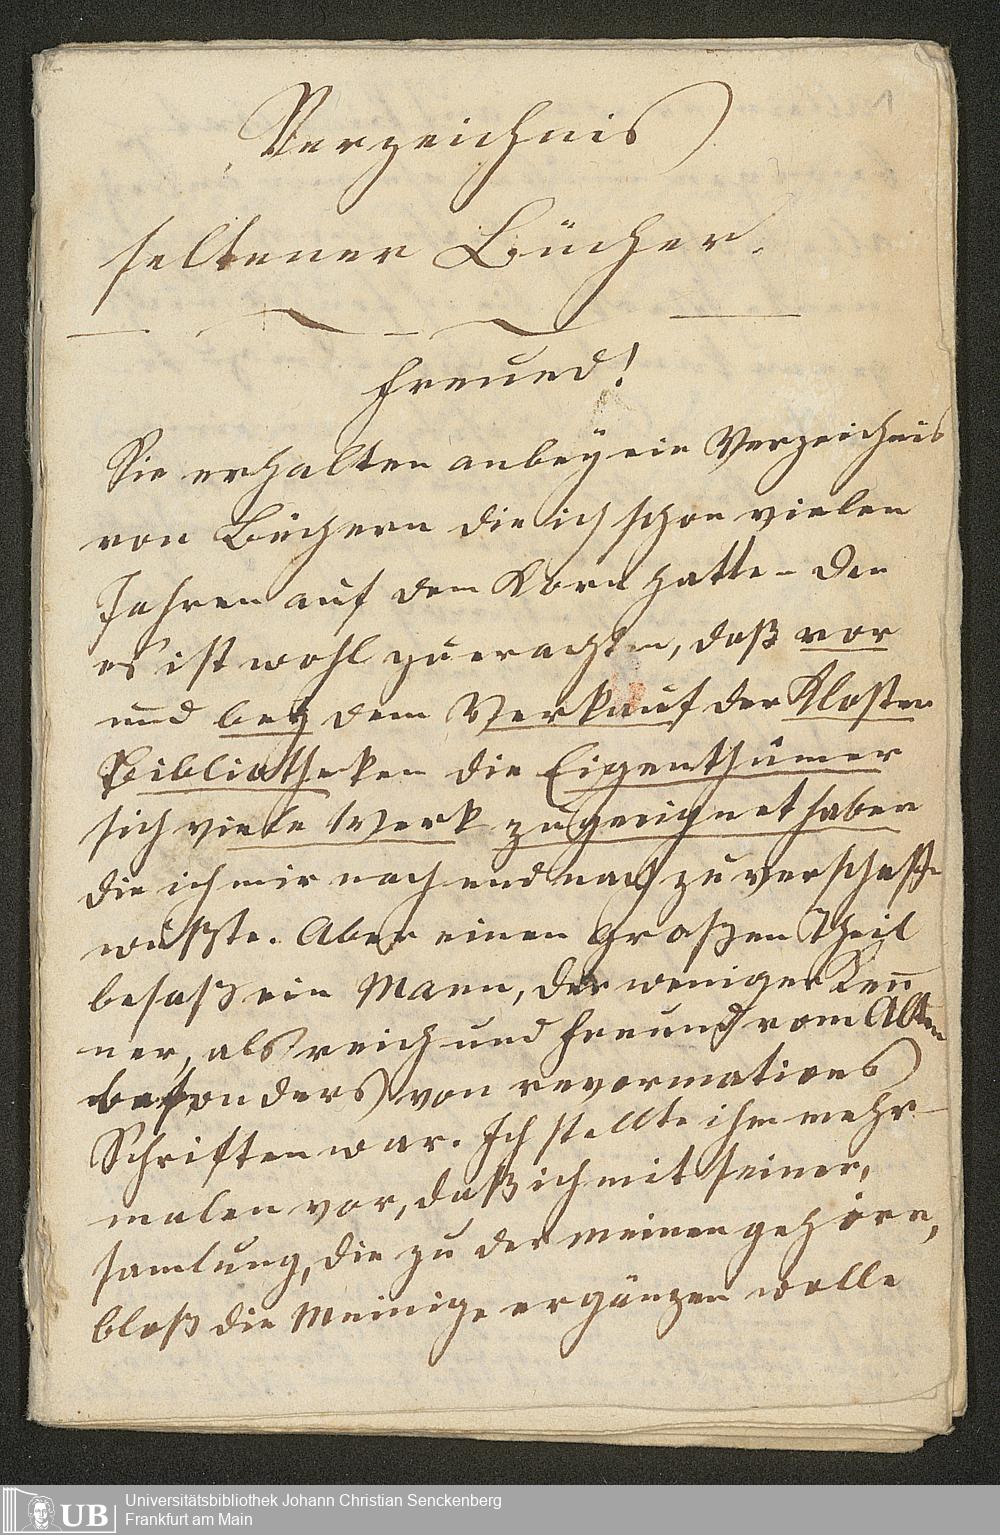 Verzeichnis
seltener Bücher.
Freund!
Sie erhalten anbeÿ ein Verzeichnis
von Büchern die ich schon vielen
Jahren auf dem Korn hatte – den
es ist wohl zu erachten, daß vor
und beÿ dem Verkauf der Kloster
Bibliotheken die Eigenthümer
sich viele Werk zugeeignet haben
die ich mir nach und nach zu verschaffen
wußte. Aber einen großen Theil
besaß ein Mann, der weniger Ken̄
ner, als reich und Freund vom Alten
besonders von revormations
Schriften war. Ich stellte ihm mehr-
malen vor, daß ich mit seiner,
samlung, die zu der meinen gehörn,
bloß die Meinige ergänzen wolle
Universitätsbibliothek Johann Christian Senckenberg
UB Frankfurt am Main